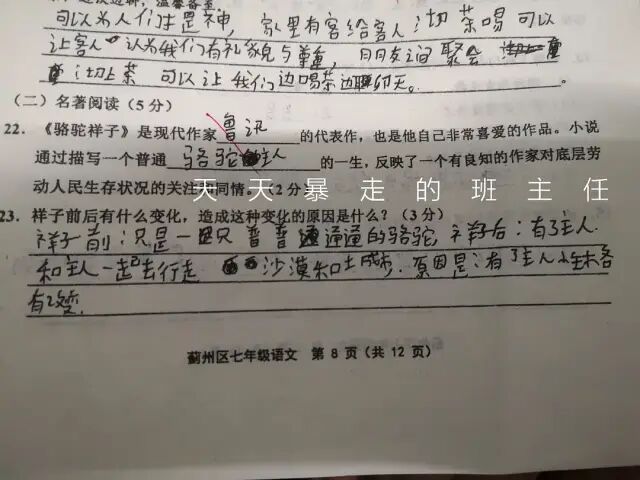 可以为人们提神，家里有客给客人沏茶喝可以
让客人认为我们有礼貌与尊重，朋友之间聚会
沏上茶 可以让我们边喝茶边聊天。
（二）名著阅读（5分）
22．《骆驼祥子》是现代作家 鲁迅 的代表作，也是他自己非常喜爱的作品。小说
通过描写一个普通 骆驼主人 的一生，反映了一个有良知的作家对底层劳
动人民生存状况的关注和同情。（2分）
天天暴走的班主任
23．祥子前后有什么变化，造成这种变化的原因是什么？（3分）
祥子前：只是一只普普通通的骆驼，祥子后：有了主人.
和主人一起去行走 沙漠和土城步，原因是：有了主人
有改变.
蓟州区七年级语文 第8页（共12页）